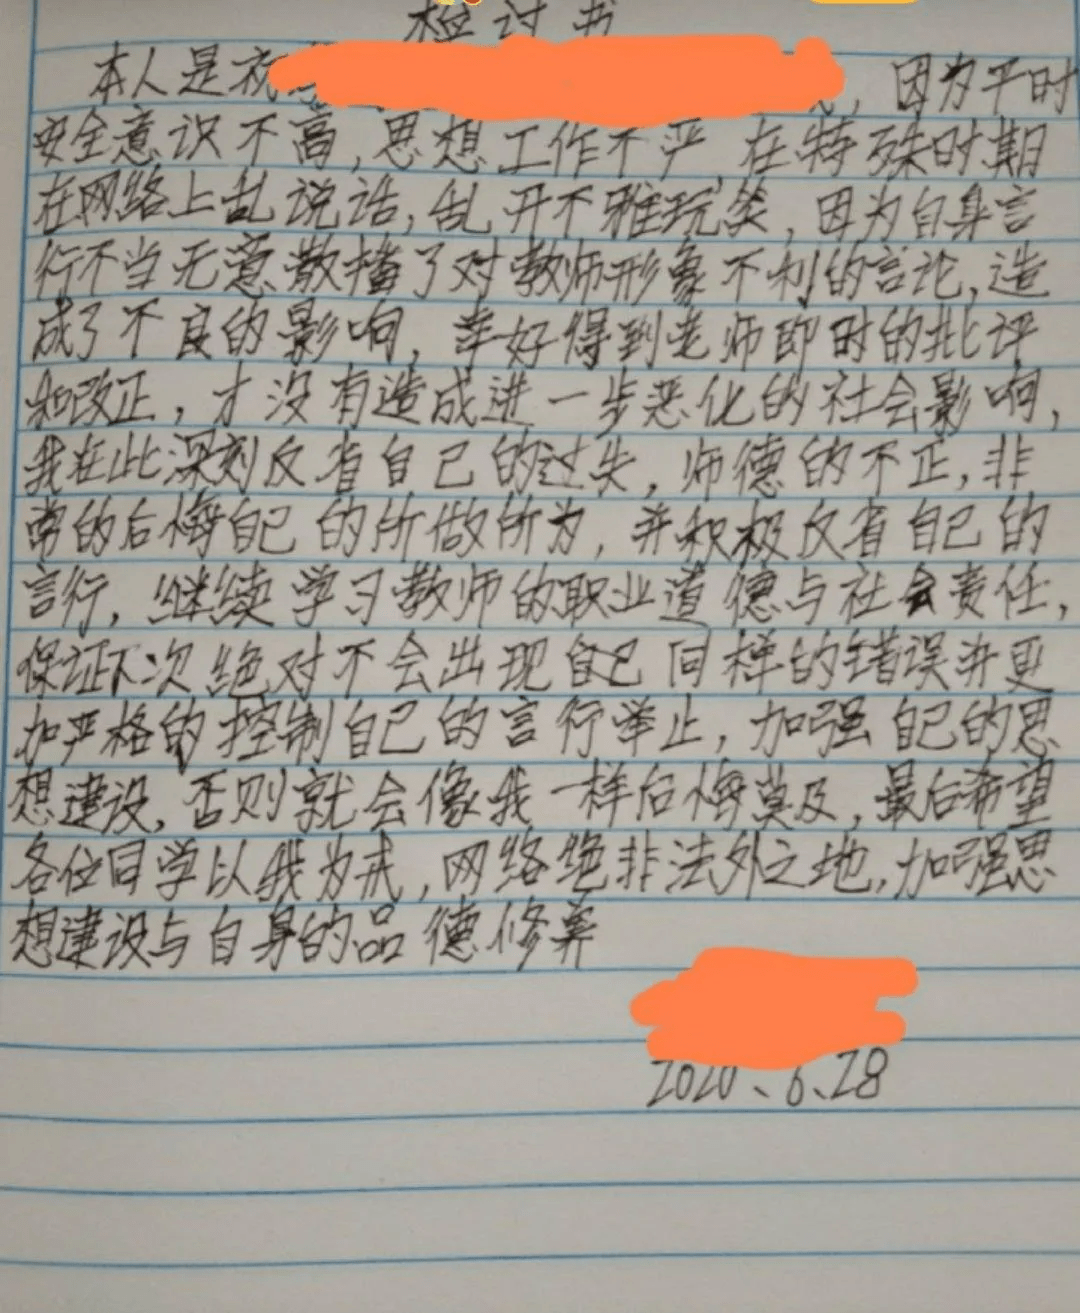 检讨书
本人是初，因为平时
安全意识不高，思想工作不严，在特殊时期
在网络上乱说话，乱开不雅玩笑，因为自身言
行不当无意散播了对教师形象不利的言论，造
成了不良的影响，幸好得到老师即时的批评
和改正，才没有造成进一步恶化的社会影响，
我在此深刻反省自己的过失，师德的不正，非
常的后悔自己的所做所为，并积极反省自己的
言行，继续学习教师的职业道德与社会责任，
保证下次绝对不会出现自己同样的错误并更
加严格的控制自己的言行举止，加强自己的思
想建设，否则就会像我一样后悔莫及，最后希望
各位同学以我为戒，网络绝非法外之地，加强思
想建设与自身的品德修养
2020、6、28